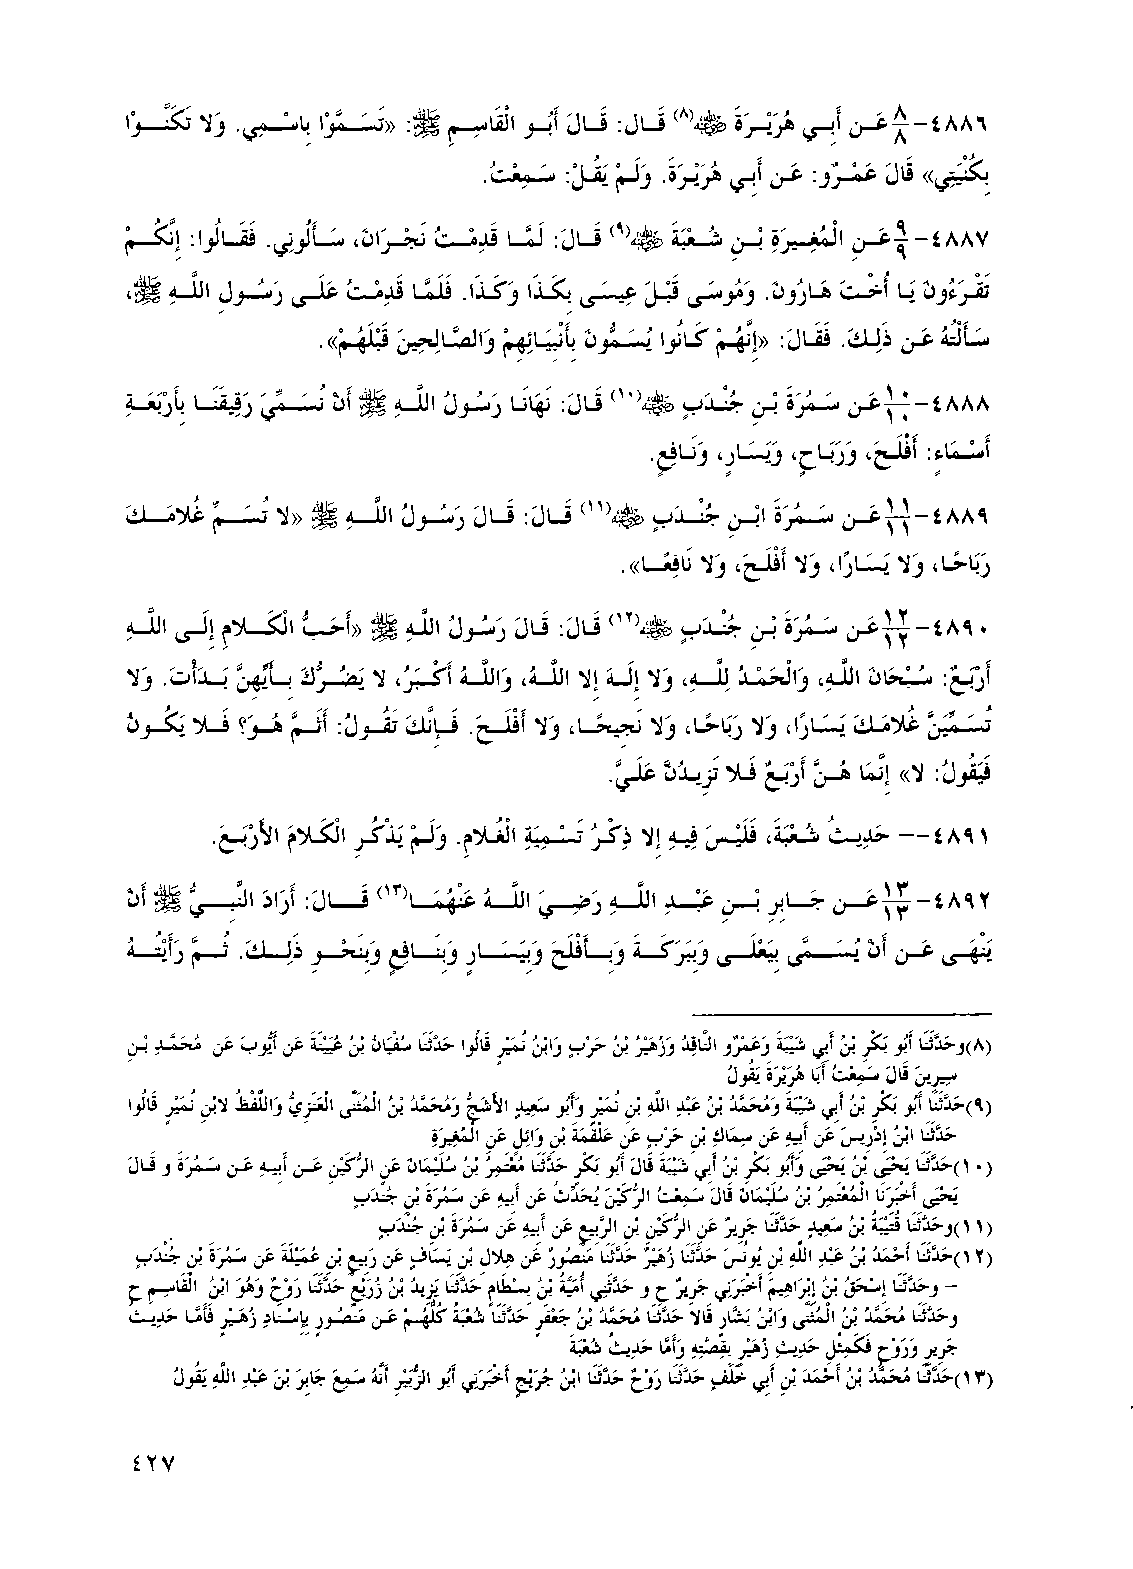 ٤٨٨٦-٨/٨ عَـنْ أَبِـي هُرَيْـرَةَ ﵁(٨) قَـالَ: قَـالَ أَبُـو الْقَاسِـمِ ﷺ: «تَسَـمَّوْا بِاسْـمِي. وَلا تَكَنَّـوْا
بِكُنْيَتِي» قَالَ عَمْـرٌو: عَـنْ أَبِـي هُرَيْـرَةَ. وَلَـمْ يَقُـلْ: سَـمِعْتُ.
٤٨٨٧-٩/٩ عَـنِ الْمُغِـيرَةِ بْـنِ شُـعْبَةَ ﵁(٩) قَـالَ: لَمَّـا قَدِمْـتُ نَجْـرَانَ، سَـأَلُونِي. فَقَـالُوا: إِنَّكُـمْ
تَقْـرَءُونَ يَـا أُخْـتَ هَـارُونَ. وَمُوسَى قَبْـلَ عِيسَـى بِكَـذَا وَكَـذَا. فَلَمَّـا قَدِمْـتُ عَلَـى رَسُـولِ اللَّـهِ ﷺ،
سَـأَلْتُهُ عَـنْ ذَلِـكَ. فَقَـالَ: «إِنَّهُـمْ كَـانُوا يُسَـمُّونَ بِأَنْبِيَـائِهِمْ وَالصَّـالِحِينَ قَبْلَهُـمْ».
٤٨٨٨-١٠/١٠ عَـنْ سَـمُرَةَ بْـنِ جُنْـدَبٍ ﵁(١٠) قَـالَ: نَهَانَـا رَسُـولُ اللَّـهِ ﷺ أَنْ نُسَـمِّيَ رَقِيقَنَـا بِأَرْبَعَـةِ
أَسْـمَاءٍ: أَفْلَـحَ، وَرَبَـاحٍ، وَيَسَـارٍ، وَنَـافِعٍ.
٤٨٨٩-١١/١١ عَـنْ سَـمُرَةَ ابْـنِ جُنْـدَبٍ ﵁(١١) قَـالَ: قَـالَ رَسُـولُ اللَّـهِ ﷺ «لا تُسَـمِّ غُلامَـكَ
رَبَاحًـا، وَلا يَسَـارًا، وَلا أَفْلَـحَ، وَلا نَافِعًـا».
٤٨٩٠-١٢/١٢ عَـنْ سَـمُرَةَ بْـنِ جُنْـدَبٍ ﵁(١٢) قَـالَ: قَـالَ رَسُـولُ اللَّـهِ ﷺ «أَحَـبُّ الْكَـلامِ إِلَـى اللَّـهِ
أَرْبَـعٌ: سُـبْحَانَ اللَّـهِ، وَالْحَمْـدُ لِلَّـهِ، وَلا إِلَـهَ إِلا اللَّـهُ، وَاللَّـهُ أَكْـبَرُ، لا يَضُـرُّكَ بِـأَيِّهِنَّ بَـدَأْتَ. وَلا
تُسَـمِّيَنَّ غُلامَـكَ يَسَـارًا، وَلا رَبَاحًـا، وَلا نَجِيحًـا، وَلا أَفْلَـحَ. فَـإِنَّكَ تَقُـولُ: أَثَـمَّ هُـوَ؟ فَـلا يَكُـونُ
فَيَقُولُ: لا» إِنَّمَا هُـنَّ أَرْبَـعٌ فَـلا تَزِيـدُنَّ عَلَـيَّ.
٤٨٩١-- حَدِيـثُ شُـعْبَةَ، فَلَيْـسَ فِيـهِ إِلا ذِكْـرُ تَسْـمِيَةِ الْغُـلامِ. وَلَـمْ يَذْكُـرِ الْكَـلامَ الأَرْبَـعَ.
٤٨٩٢-١٣/١٣ عَـنْ جَـابِرِ بْـنِ عَبْـدِ اللَّـهِ رَضِـيَ اللَّـهُ عَنْهُمَـا(١٣) قَـالَ: أَرَادَ النَّبِـيُّ ﷺ أَنْ
يَنْهَـى عَـنْ أَنْ يُسَـمَّى بِيَعْلَـى وَبِبَرَكَـةَ وَبِـأَفْلَحَ وَبِيَسَـارٍ وَبِنَـافِعٍ وَبِنَحْـوِ ذَلِـكَ. ثُـمَّ رَأَيْتُـهُ
(٨)وحَدَّثَنَا أَبُو بَكْرِ بْنُ أَبِي شَيْبَةَ وَعَمْرٌو النَّاقِدُ وَزُهَيْرُ بْنُ حَرْبٍ وَابْنُ نُمَيْرٍ قَالُوا حَدَّثَنَا سُفْيَانُ بْنُ عُيَيْنَةَ عَنْ أَيُّوبَ عَنْ مُحَمَّدِ بْنِ
سِيرِينَ قَالَ سَمِعْتُ أَبَا هُرَيْرَةَ يَقُولُ
(٩)حَدَّثَنَا أَبُو بَكْرِ بْنُ أَبِي شَيْبَةَ وَمُحَمَّدُ بْنُ عَبْدِ اللَّهِ بْنِ نُمَيْرٍ وَأَبُو سَعِيدٍ الأَشَجُّ وَمُحَمَّدُ بْنُ الْمُثَنَّى الْعَنَزِيُّ وَاللَّفْظُ لابْنِ نُمَيْرٍ قَالُوا
حَدَّثَنَا ابْنُ إِدْرِيسَ عَنْ أَبِيهِ عَنْ سِمَاكِ بْنِ حَرْبٍ عَنْ عَلْقَمَةَ بْنِ وَائِلٍ عَنِ الْمُغِيرَةِ
(١٠)حَدَّثَنَا يَحْيَى بْنُ يَحْيَى وَأَبُو بَكْرِ بْنُ أَبِي شَيْبَةَ قَالَ أَبُو بَكْرٍ حَدَّثَنَا مُعْتَمِرُ بْنُ سُلَيْمَانَ عَنِ الرُّكَيْنِ عَـنْ أَبِيـهِ عَـنْ سَـمُرَةَ و قَـالَ
يَحْيَى أَخْبَرَنَا الْمُعْتَمِرُ بْنُ سُلَيْمَانَ قَالَ سَمِعْتُ الرُّكَيْنَ يُحَدِّثُ عَنْ أَبِيهِ عَنْ سَمُرَةَ بْنِ جُنْدَبٍ
(١١)وحَدَّثَنَا قُتَيْبَةُ بْنُ سَعِيدٍ حَدَّثَنَا جَرِيرٌ عَنِ الرُّكَيْنِ بْنِ الرَّبِيعِ عَنْ أَبِيهِ عَنْ سَمُرَةَ بْنِ جُنْدَبٍ
(١٢)حَدَّثَنَا أَحْمَدُ بْنُ عَبْدِ اللَّهِ بْنِ يُونُسَ حَدَّثَنَا زُهَيْرٌ حَدَّثَنَا مَنْصُورٌ عَنْ هِلالِ بْنِ يَسَافٍ عَنْ رَبِيعِ بْنِ عُمَيْلَةَ عَنْ سَمُرَةَ بْنِ جُنْدَبٍ
– وحَدَّثَنَا إِسْحَقُ بْنُ إِبْرَاهِيمَ أَخْبَرَنِي جَرِيرٌ ح و حَدَّثَنِي أُمَيَّةُ بْنُ بِسْطَامٍ حَدَّثَنَا يَزِيدُ بْنُ زُرَيْعٍ حَدَّثَنَا رَوْحٌ وَهُوَ ابْنُ الْقَاسِـمِ ح
وحَدَّثَنَا مُحَمَّدُ بْنُ الْمُثَنَّى وَابْنُ بَشَّارٍ قَالا حَدَّثَنَا مُحَمَّدُ بْنُ جَعْفَرٍ حَدَّثَنَا شُعْبَةُ كُلُّهُـمْ عَـنْ مَنْصُورٍ بِإِسْنَادِ زُهَيْرٍ فَأَمَّا حَدِيثُ
جَرِيرٍ وَرَوْحٍ فَكَمِثْلِ حَدِيثِ زُهَيْرٍ بِقِصَّتِهِ وَأَمَّا حَدِيثُ شُعْبَةَ
(١٣)حَدَّثَنَا مُحَمَّدُ بْنُ أَحْمَدَ بْنِ أَبِي خَلَفٍ حَدَّثَنَا رَوْحٌ حَدَّثَنَا ابْنُ جُرَيْجٍ أَخْبَرَنِي أَبُو الزُّبَيْرِ أَنَّهُ سَمِعَ جَابِرَ بْنَ عَبْدِ اللَّهِ يَقُولُ
٤٢٧